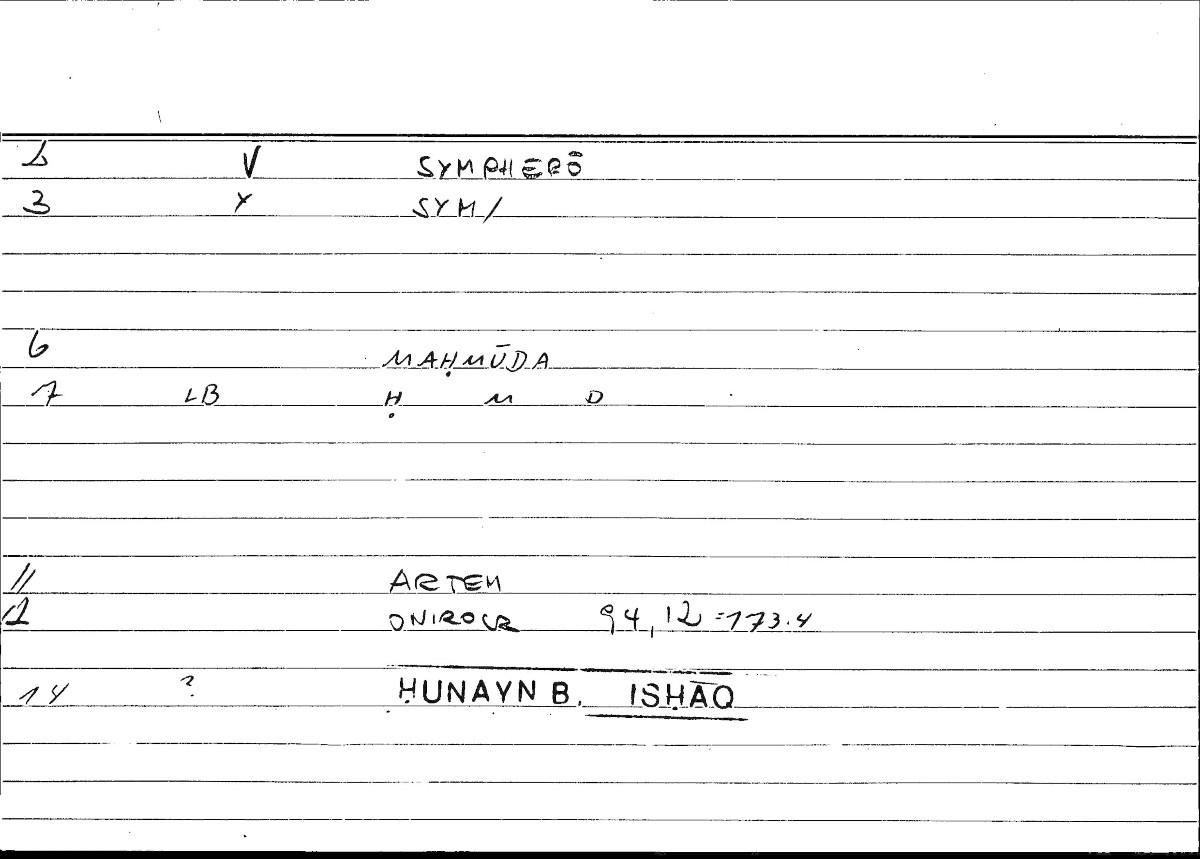 2 V SYMPHERŌ
3 X SYM/
6 MAḤMŪDA
7 LB Ḥ M D
11 ARTEM
12 ONIROCR 94,12=173.4
14 ? ḤUNAYN B. ISḤĀQ